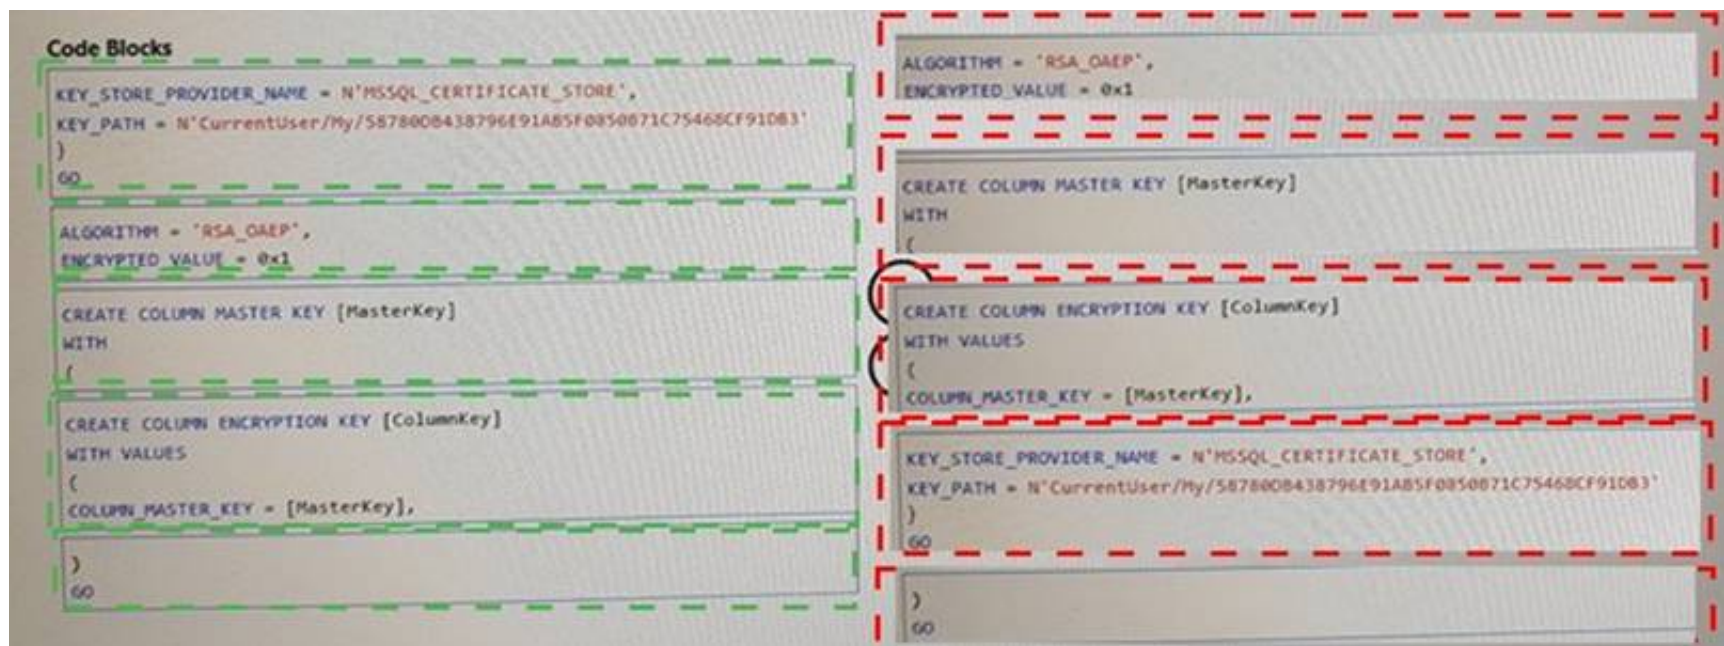 Code Blocks
KEY_STORE_PROVIDER_NAME = N'MSSQL_CERTIFICATE_STORE',
KEY_PATH = N'CurrentUser/My/58780DB438796E91AB5F0850871C75468CF91DB3'
)
GO
ALGORITHM = 'RSA_OAEP',
ENCRYPTED_VALUE = 0x1
CREATE COLUMN MASTER KEY [MasterKey]
WITH
(
CREATE COLUMN ENCRYPTION KEY [ColumnKey]
WITH VALUES
(
COLUMN_MASTER_KEY = [MasterKey],
)
GO
ALGORITHM = 'RSA_OAEP',
ENCRYPTED_VALUE = 0x1
CREATE COLUMN MASTER KEY [MasterKey]
WITH
(
CREATE COLUMN ENCRYPTION KEY [ColumnKey]
WITH VALUES
(
COLUMN_MASTER_KEY = [MasterKey],
KEY_STORE_PROVIDER_NAME = N'MSSQL_CERTIFICATE_STORE',
KEY_PATH = N'CurrentUser/My/58780DB438796E91AB5F0850871C75468CF91DB3'
)
GO
)
GO